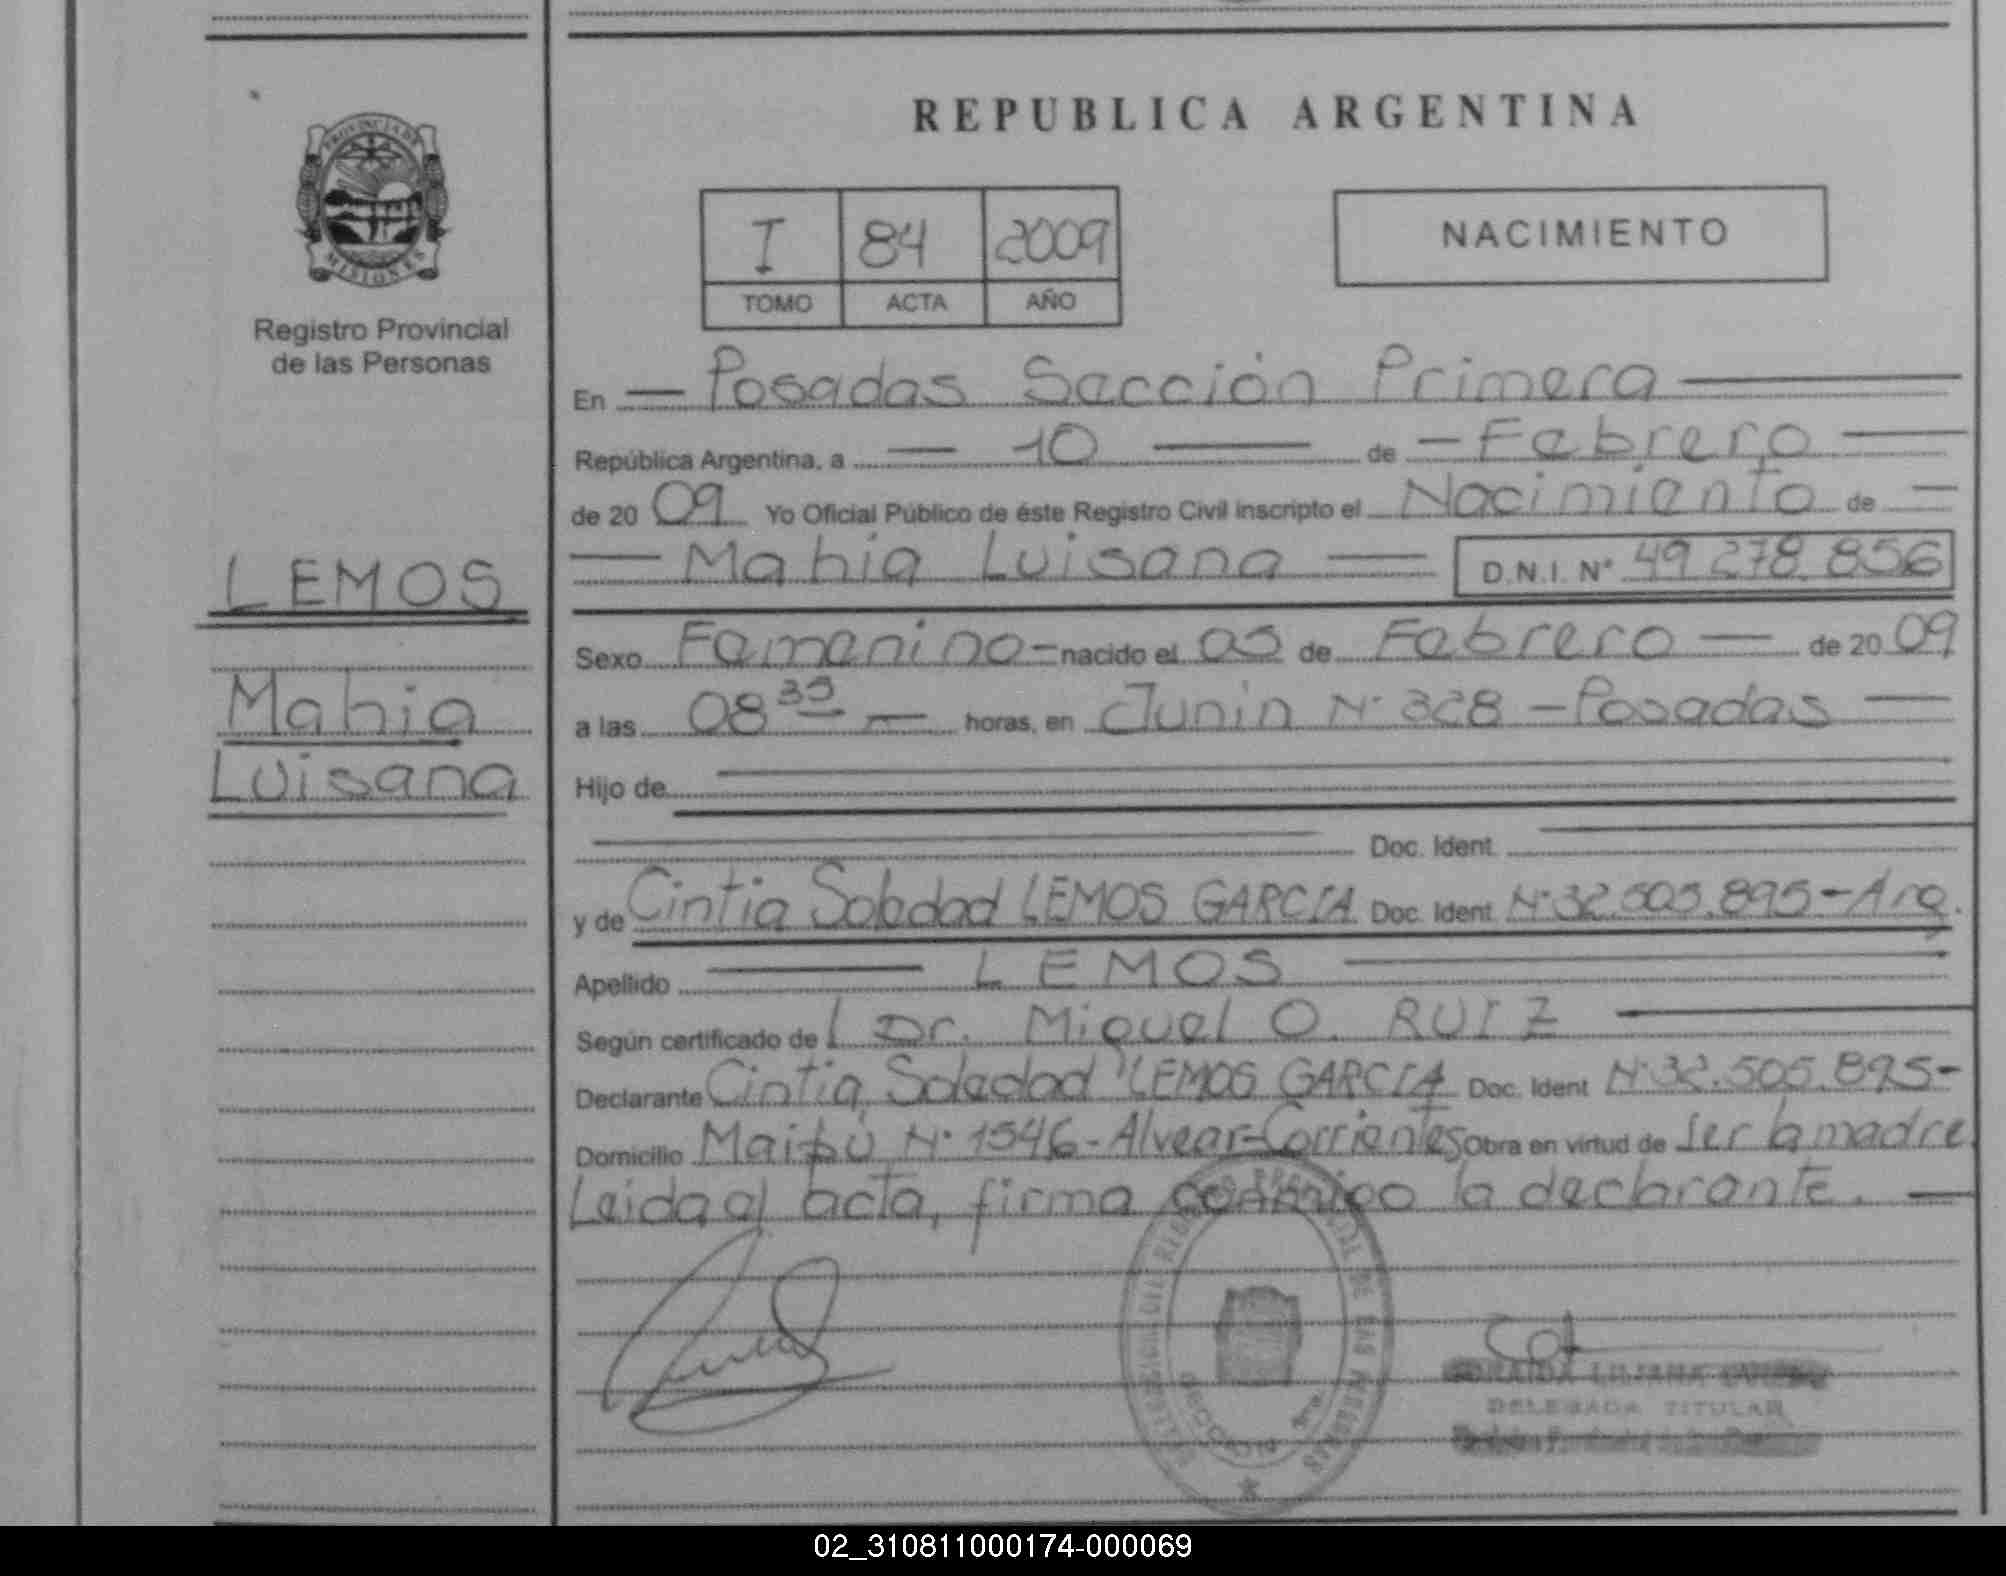 REPUBLICA ARGENTINA
PROVINCIA DE
MISIONES
Registro Provincial
de las Personas
I 84 2009
TOMO ACTA AÑO
NACIMIENTO
En — Posadas Sección Primera —
República Argentina, a — 10 — de — Febrero —
de 20 09 Yo Oficial Público de éste Registro Civil inscripto el Nacimiento de —
— Mahia Luisana — D.N.I. N° 49 278.856
LEMOS
Mahia
Luisana
Sexo Femenino — nacido el 05 de Febrero — de 20 09
a las 08 35 — horas, en Junin N° 328 — Posadas —
Hijo de
Doc. Ident.
y de Cintia Soledad LEMOS GARCIA Doc. Ident. N° 32.505.895 — Arg.
Apellido — LEMOS —
Según certificado de l Dr. Miguel O. RUIZ —
Declarante Cintia Soledad LEMOS GARCIA Doc. Ident N° 32.505.895 —
Domicilio Maipú N° 1546 - Alvear - Corrientes Obra en virtud de ser la madre.
Leida el acta, firma conmigo la declarante. —
DELEGADA TITULAR
02_310811000174-000069